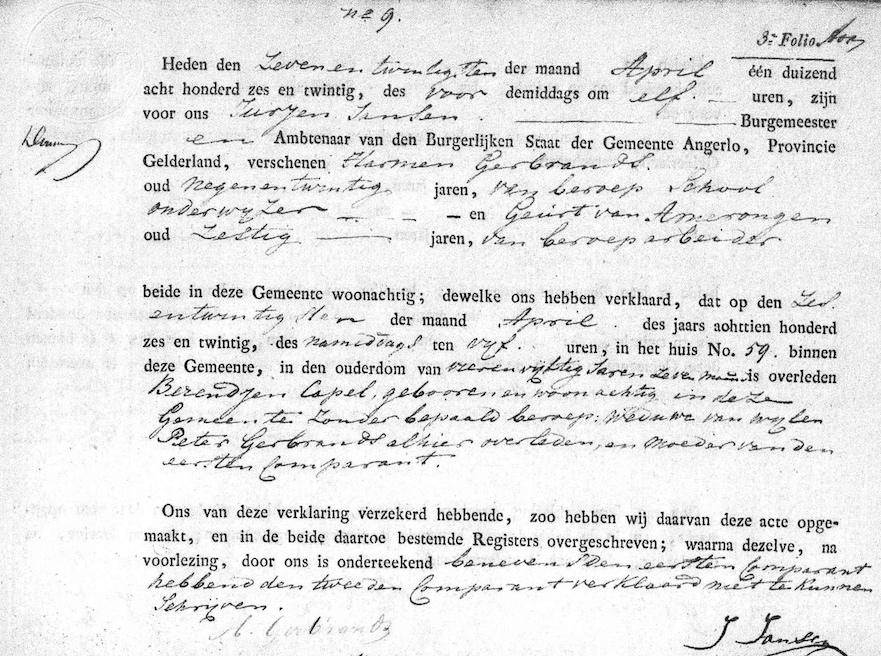 no 9.
3e Folio
Heden den Zevenentwintigsten der maand April één duizend
acht honderd zes en twintig, des voor demiddags om elf uren, zijn
voor ons Jurjen Jansen. Burgemeester
en Ambtenaar van den Burgerlijken Staat der Gemeente Angerlo, Provincie
Gelderland, verschenen Harmen Gerbrands
oud Negenentwintig jaren, van beroep School
onderwyzer – – – – en Geurt van Amerongen
oud Zestig jaren, van beroep arbeider
beide in deze Gemeente woonachtig; dewelke ons hebben verklaard, dat op den Zes
entwintigsten der maand April. des jaars achttien honderd
zes en twintig, des namiddags ten vyf. uren, in het huis No. 59. binnen
deze Gemeente, in den ouderdom van vierenvyftig Jaren Zeven is overleden
Berendjen Capel, geboren en woonachtig in deze
Gemeente Zonder bepaald beroep: Weduwe van wylen
Peter Gerbrands alhier overleden, en Moeder van den
eersten Comparant.
Ons van deze verklaring verzekerd hebbende, zoo hebben wij daarvan deze acte opge-
maakt, en in de beide daartoe bestemde Registers overgeschreven; waarna dezelve, na
voorlezing, door ons is onderteekend benevens den eersten Comparant
hebbende den tweeden Comparant verklaard niet te kunnen
Schrijven.
H. Gerbrands
J Jansen